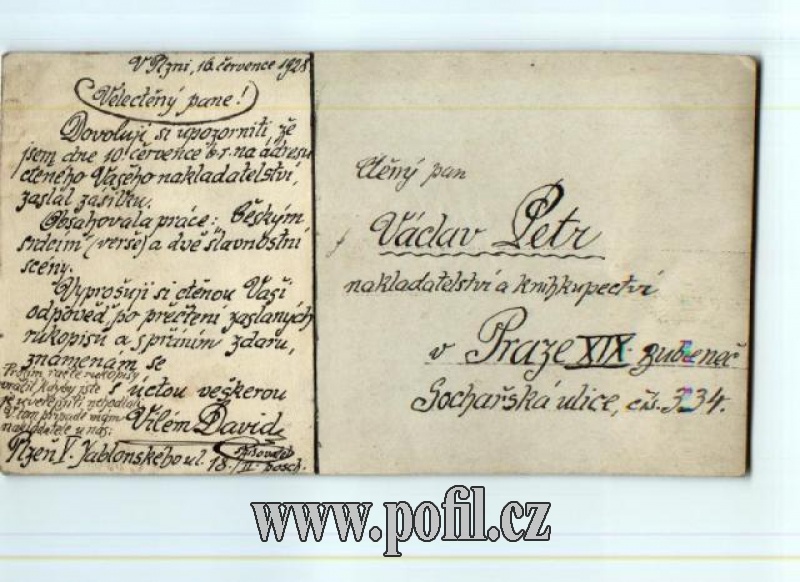 V Plzni, 16. července 1928
Velectěný pane!
Dovoluji si upozorniti, že
jsem dne 10. července t.r. na adresu
ctěného Vašeho nakladatelství,
zaslal zásilku.
Obsahovala práce: Českým
srdcím (verše) a dvě slavnostní
scény.
Vyprošuji si ctěnou Vaši
odpověď po přečtení zaslaných
rukopisů a s přáním zdaru,
znamenám se
s úctou veškerou
Vilém David
spisovatel
Plzeň V. Jablonského ul. 18./II. posch.
Prosím račte rukopisy
vrátit kdyby jste
je uveřejniti nehodlali
V tom případě mám
nakladatele u nás.
Ctěný pan
Václav Petr
nakladatelství a knihkupectví
v Praze XIX. Bubeneč
Sochařská ulice, čís. 334.
www.pofil.cz